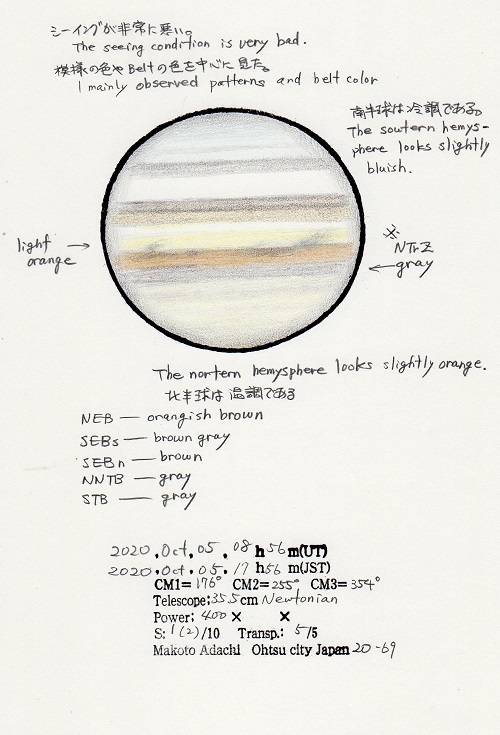 シーイングが非常に悪い。
The seeing condition is very bad.
模様の色やBeltの色を中心に見た。
I mainly observed patterns and belt color
南半球は冷調である。
The soutern hemys-
phere looks slightly
bluish.
light
orange
※
NTrZ
gray
The nortern hemysphere looks slightly orange.
北半球は温調である
NEB — orangish brown
SEBs — brown gray
SEBn — brown
NNTB — gray
STB — gray
2020, Oct, 05, 08 h 56 m(UT)
2020, Oct, 05, 17 h 56 m(JST)
CM1= 176° CM2= 255° CM3= 354°
Telescope: 35.5 cm Newtonian
Power: 400 × ×
S: 1(2)/10 Transp.: 5/5
Makoto Adachi Ohtsu city Japan 20-69